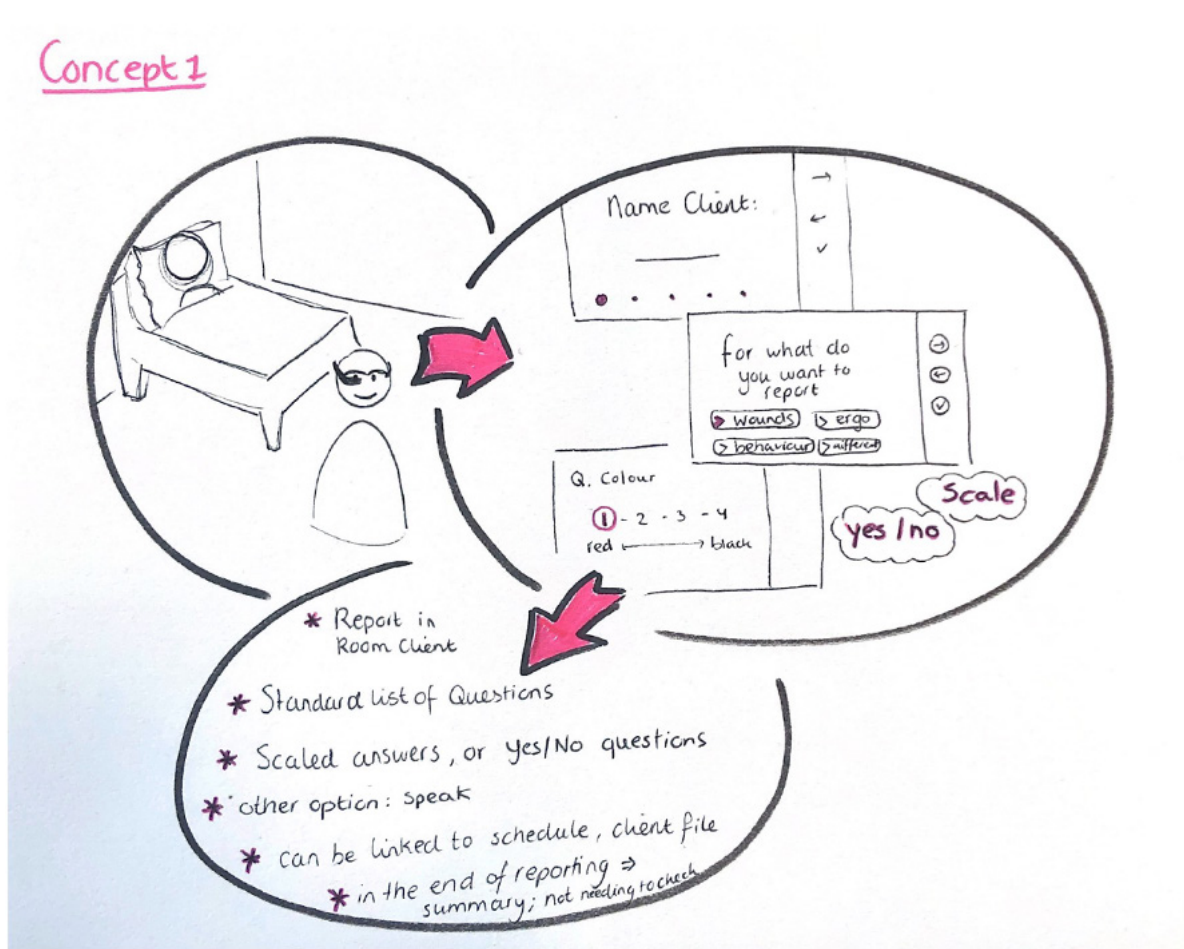 Concept 1
Name Client:
for what do
you want to
report
> wounds
> ergo
> behaviour
> different
Q. Colour
1 - 2 - 3 - 4
red ⟷ black
Scale
yes / no
* Report in
Room Client
* Standard list of Questions
* Scaled answers, or yes/No questions
* other option: speak
* can be linked to schedule, client file
* in the end of reporting ⇒
summary; not needing to check